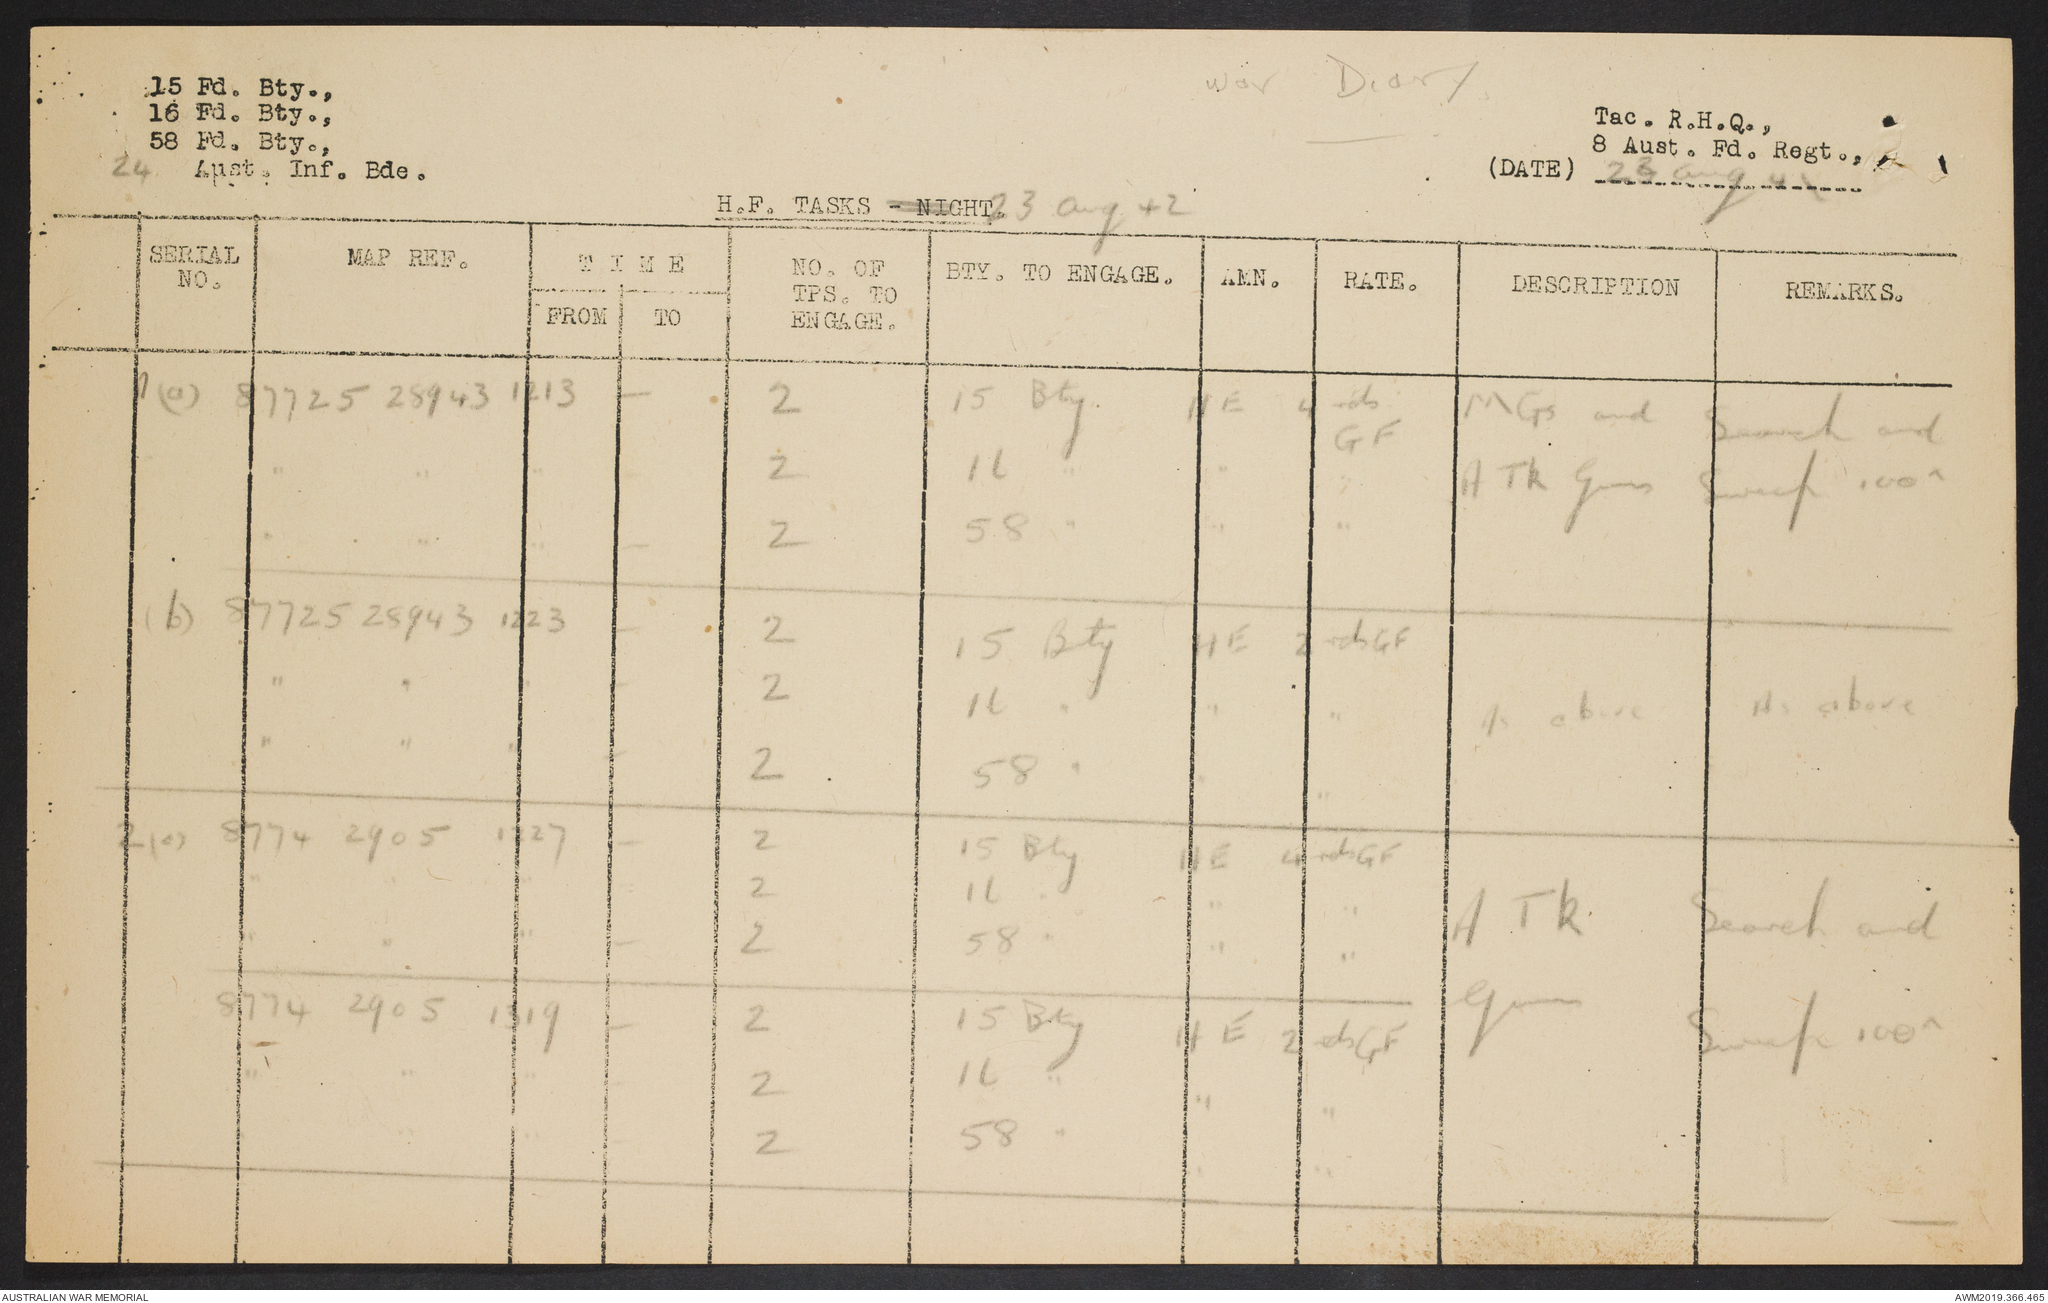 War Diary
15 Fd. Bty.,
16 Fd. Bty.,
58 Fd. Bty.,
24 Aust. Inf. Bde.
Tac. R.H.Q.,
8 Aust. Fd. Regt.,
(DATE) 23 Aug 42
H.F. TASKS - NIGHT. 23 Aug 42
SERIAL NO. MAP REF. TIME FROM TO NO. OF TPS. TO ENGAGE. BTY. TO ENGAGE. AMN. RATE. DESCRIPTION REMARKS.
1(a) 87725 28943 1213 — 2 15 Bty HE 4 rds GF MGs and Search and
" " " 2 16 " " " A Tk Guns Sweep 100ˣ
" " " — 2 58 " " "
(b) 87725 28943 1223 — 2 15 Bty HE 2 rds GF
" " " — 2 16 " " " As above As above
" " " — 2 58 " "
2(a) 8774 2905 1227 — 2 15 Bty HE 4 rds GF
" " 2 16 " " " A Tk Search and
" " " — 2 58 " " "
8774 2905 1319 — 2 15 Bty HE 2 rds GF Guns Sweep 100ˣ
" " " 2 16 " " "
" " 2 58 " " "
AUSTRALIAN WAR MEMORIAL
AWM2019.366.465